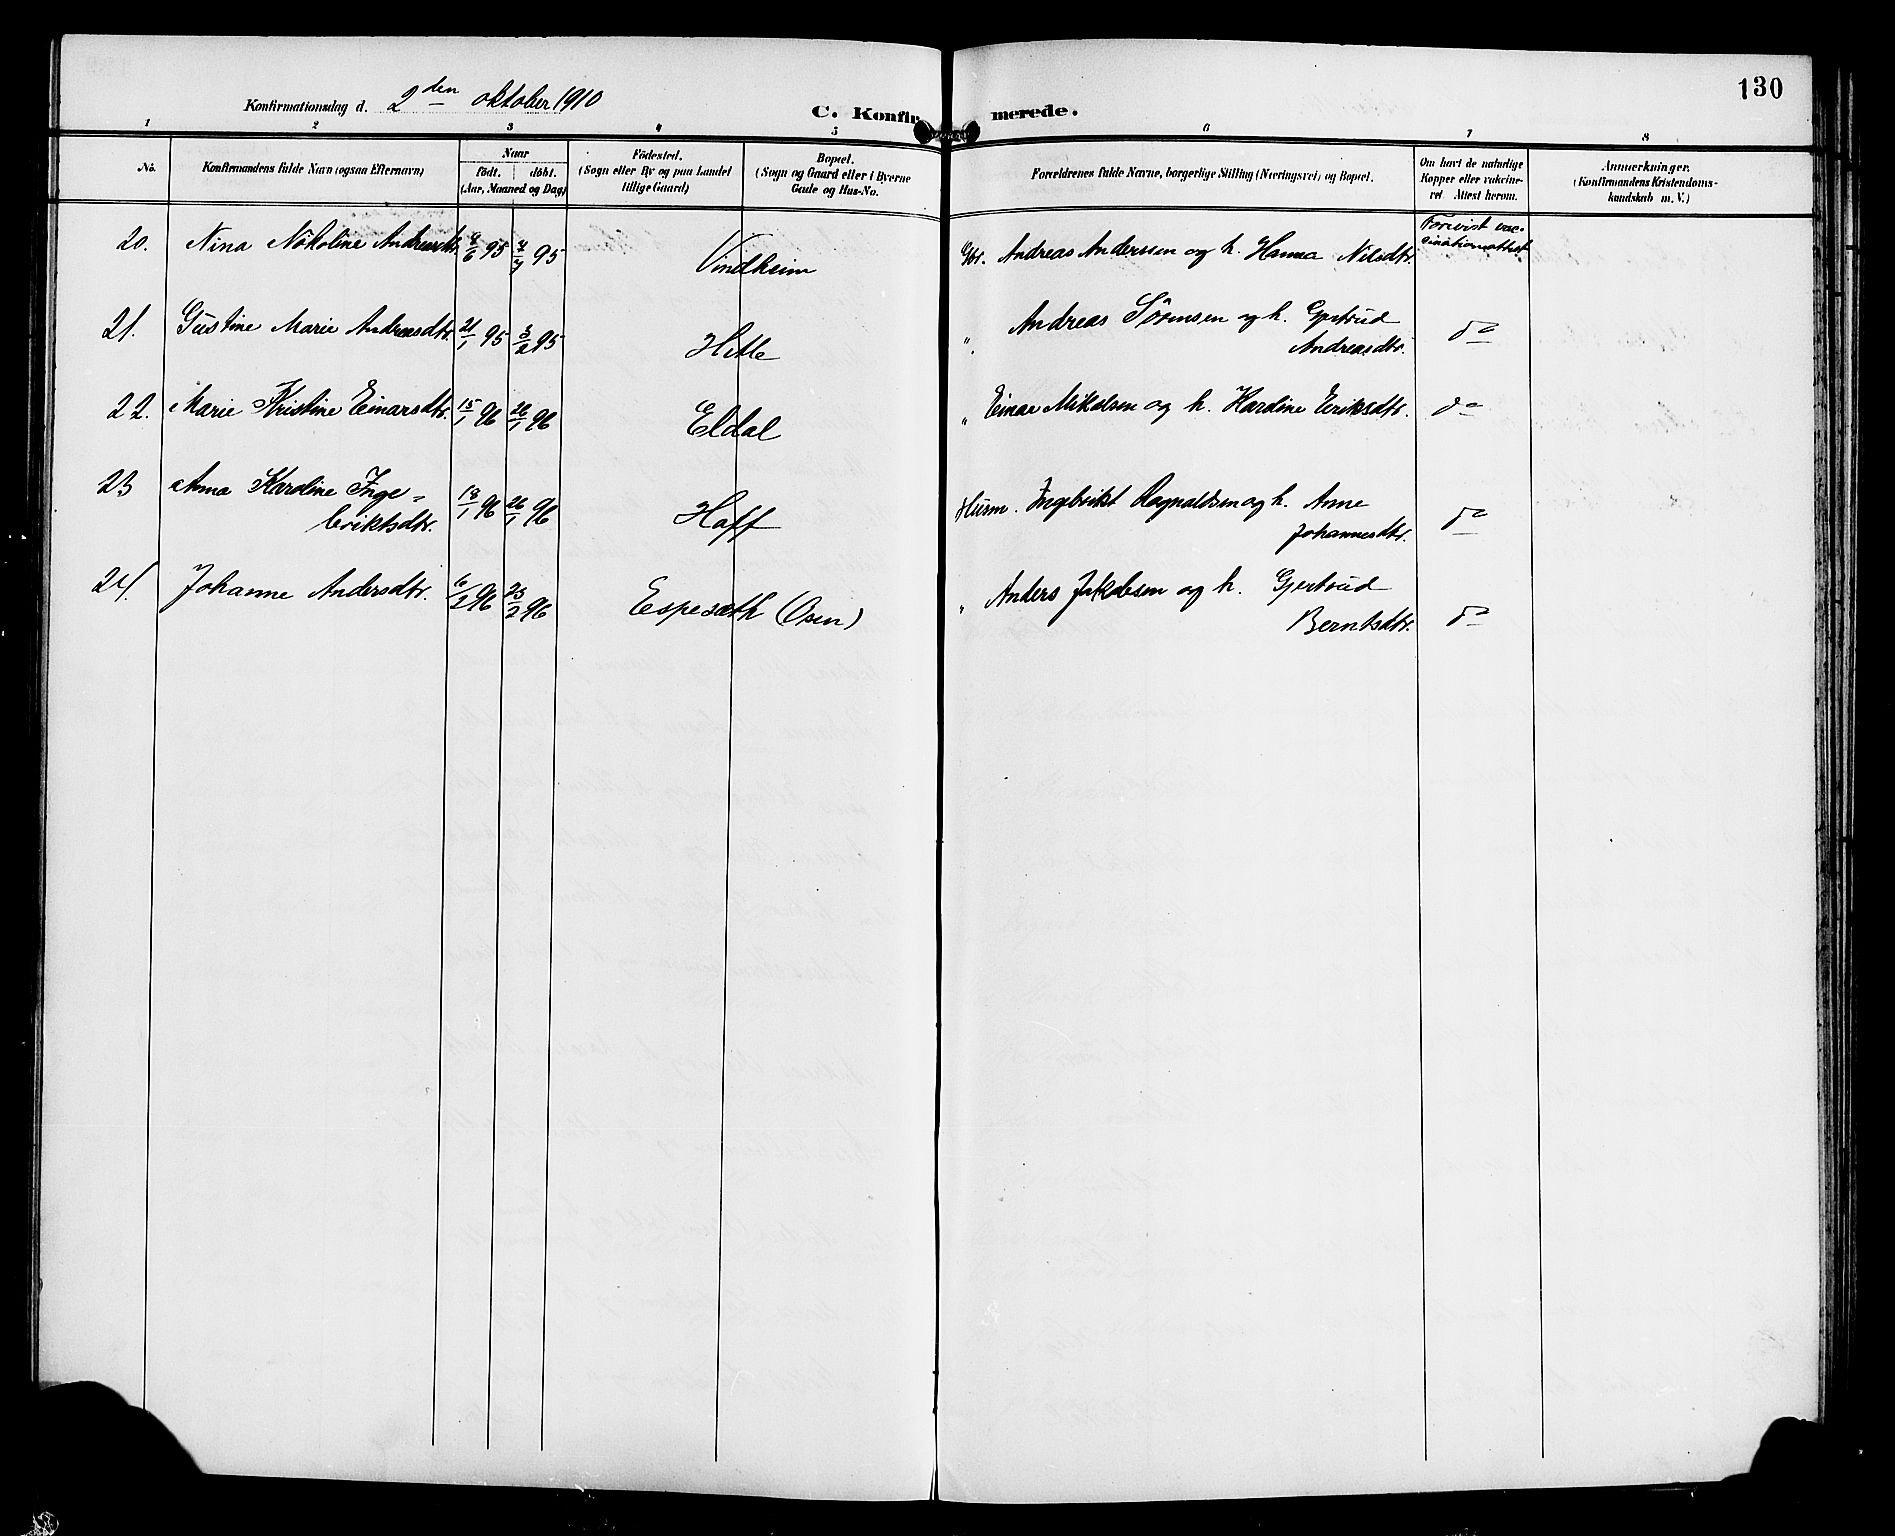 130
Konfirmationsdag d. 2den oktober 1910
C. Konfirmerede.
1 2 3 4 5 6 7 8
No.
Konfirmandens fulde Navn (ogsaa Efternavn)
Naar
födt. döbt.
(Aar, Maaned og Dag)
Födested.
(Sogn eller By og paa Landet
tillige Gaard)
Bopæl.
(Sogn og Gaard eller i Byerne
Gade og Hus-No.
Forældrenes fulde Navne, borgerlige Stilling (Næringsvei) og Bopæl.
Om havt de naturlige
Kopper eller vakcine-
ret. Attest herom.
Anmærkninger.
(Konfirmandens Kristendoms-
kundskab m. V.)
20. Nina Nikoline Andreasdtr. 95 95 Vindheim Gbr. Andreas Anderssen og h. Hanna Nilsdtr. Forevist vac-
cinationsattest
21. Gustine Marie Andreasdtr. 21/1 95 3/2 95 Hitle „ Andreas Sörensen og h. Gjertrud
Andreasdtr. do
22. Marie Kristine Einarsdtr. 15/1 96 26/1 96 Eldal „ Einar Mikelsen og h. Hardine Eriksdtr. do
23 Anna Karoline Inge-
briktsdtr. 18/1 96 26/1 96 Hoff Husm. Ingebrikt Ragnaldsen og h. Anne
Johannesdtr. do
24. Johanne Andersdtr. 6/2 96 23/2 96 Espesæth (Osen) „ Anders Jakobsen og h. Gjertrud
Berntsdtr. do